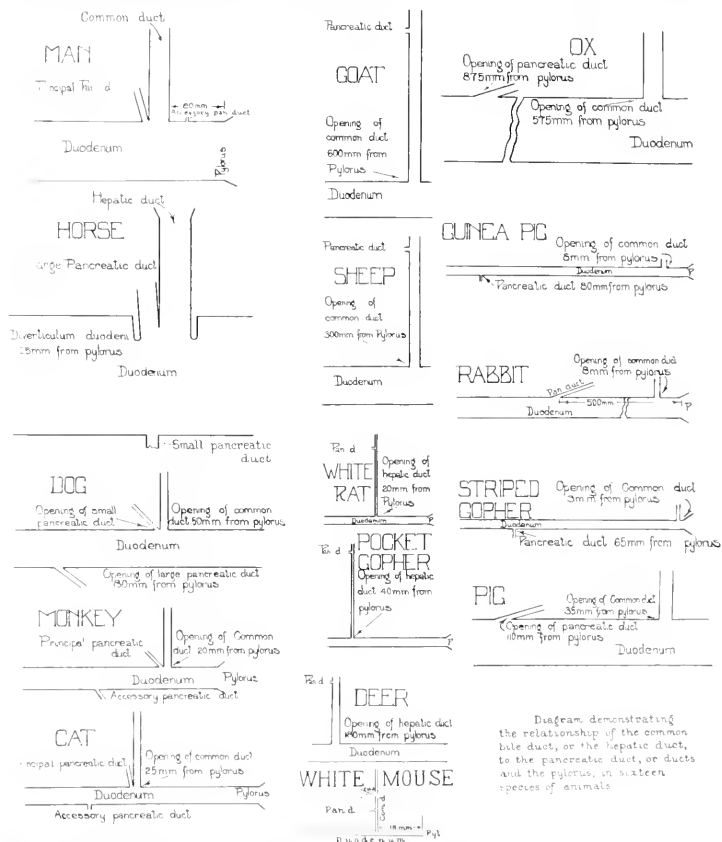 Common duct
MAN
60mm
Accessory pan duct
Duodenum
Pylorus
Hepatic duct
HORSE
Pancreatic duct
mm from pylorus
Duodenum
Small pancreatic
duct
DOG
Opening of small
pancreatic duct
Opening of common
duct 50mm from pylorus
Duodenum
Opening of large pancreatic duct
from pylorus
MONKEY
Principal pancreatic
duct
Opening of Common
duct 20mm from pylorus
Duodenum
Pylorus
Accessory pancreatic duct
CAT
pancreatic duct
Opening of common duct
25mm from pylorus
Duodenum
Pylorus
Accessory pancreatic duct
Pancreatic duct
GOAT
Opening of
common duct
600mm from
Pylorus
Duodenum
Pancreatic duct
SHEEP
Opening of
common duct
300mm from Pylorus
Duodenum
Pan d
WHITE
RAT
Opening of
hepatic duct
20mm from
Pylorus
Duodenum
P
Pan d
POCKET
GOPHER
Opening of hepatic
duct 40mm from
pylorus
P
Pan d
DEER
Opening of hepatic duct
from pylorus
Duodenum
WHITE MOUSE
Pan d
Com d
18mm
Pyl
Duodenum
OX
Opening of pancreatic duct
875mm from pylorus
Opening of common duct
575mm from pylorus
Duodenum
GUINEA PIG
Opening of common duct
from pylorus
Duodenum
P
Pancreatic duct 80mm from pylorus
RABBIT
Opening of common duct
8mm from pylorus
Pan duct
500mm
P
Duodenum
STRIPED
GOPHER
Opening of Common duct
3mm from pylorus
Duodenum
Pancreatic duct 65mm from pylorus
PIG
Opening of Common duct
35mm from pylorus
Opening of pancreatic duct
110mm from pylorus
Duodenum
Diagram demonstrating
the relationship of the common
bile duct, or the hepatic duct,
to the pancreatic duct, or ducts
and the pylorus, in sixteen
species of animals